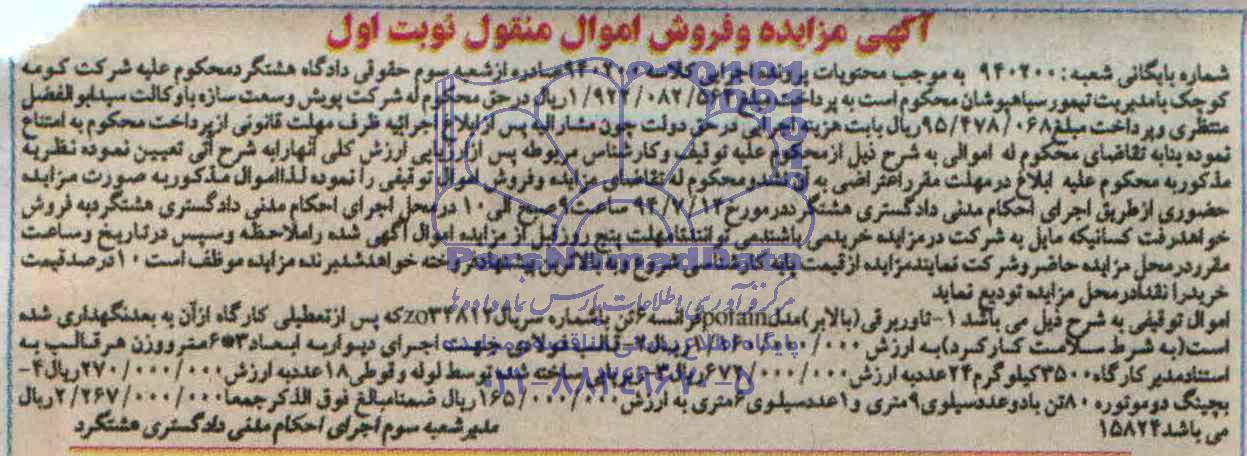 آگهی مزایده وفروش اموال منقول نوبت اول
شماره بایگانی شعبه: ۹۴۰۲۰۰ به موجب محتویات پرونده اجرایی کلاسه ۹۴۰۲۰۰ صادره ازشعبه سوم حقوقی دادگاه هشتگردمحکوم علیه شرکت کومه
کوچک بامدیریت تیمور سیاهپوشان محکوم است به پرداخت مبلغ ریال درحق محکوم له شرکت پویش وسعت سازه باوکالت سیدابوالفضل
منتظری وپرداخت مبلغ۹۵/۴۷۸/۰۶۸ریال بابت هزینه اجرایی درحق دولت چون مشارالیه پس ازابلاغ اجرائیه ظرف مهلت قانونی ازپرداخت محکوم به امتناع
نموده بنابه تقاضای محکوم له اموالی به شرح ذیل ازمحکوم علیه توقیف وکارشناس مربوطه پس ازارزیابی ارزش کلی آنهارابه شرح آتی تعیین نموده نظربه
مذکوربه محکوم علیه ابلاغ درمهلت مقرراعتراضی به آن نشدومحکوم له تقاضای مزایده وفروش اموال توقیفی را نموده لذااموال مذکوربه صورت مزایده
حضوری ازطریق اجرای احکام مدنی دادگستری هشتگرددرمورخ۹۴/۷/۱۴ ساعت۹صبح الی۱۰ درمحل اجرای احکام مدنی دادگستری هشتگردبه فروش
خواهدرفت کسانیکه مایل به شرکت درمزایده خریدمی باشندمی توانندتامهلت پنج روزقبل از مزایده اموال آگهی شده راملاحظه وسپس درتاریخ وساعت
مقرردرمحل مزایده حاضروشرکت نمایندمزایده ازقیمت پایه کارشناسی شروع وبه بالاترین پیشنهادفروخته خواهدشدبرنده مزایده موظف است ۱۰درصدقیمت
خریدرا نقدادرمحل مزایده تودیع نماید
اموال توقیفی به شرح ذیل می باشد ۱-تاوربرقی(بالابر)مدلpotainفرانسه۶تن باشماره سریال۳۴۸۱۲zoکه پس ازتعطیلی کارگاه ازآن به بعدنگهداری شده
است(به شرط سلامت کارکرد)به ارزش ریال۲-قالب فولادی جهت اجرای دیواربه ابعاد۳*۶متروزن هرقالب به
استنادمدیرکارگاه۳۵۰۰کیلوگرم۲۴عددبه ارزش۶۷۲/۰۰۰/۰۰۰ریال۳-زیرپایی ساخته شده توسط لوله وقوطی۱۸عددبه ارزش۲۷۰/۰۰۰/۰۰۰ریال۴-
بچینگ دوموتوره ۸۰تن بادوعددسیلوی۹متری و۱عددسیلوی۶متری به ارزش۱۶۵/۰۰۰/۰۰۰ریال ضمنامبالغ فوق الذکرجمعا۲/۲۶۷/۰۰۰/۰۰۰ریال
می باشد۱۵۸۲۴
مدیرشعبه سوم اجرای احکام مدنی دادگستری هشتگرد
ParsNamadData
مرکز فرآوری اطلاعات پارس نماد داده ها
۰۲۱-۸۸۳۴۹۶۷۰-۵